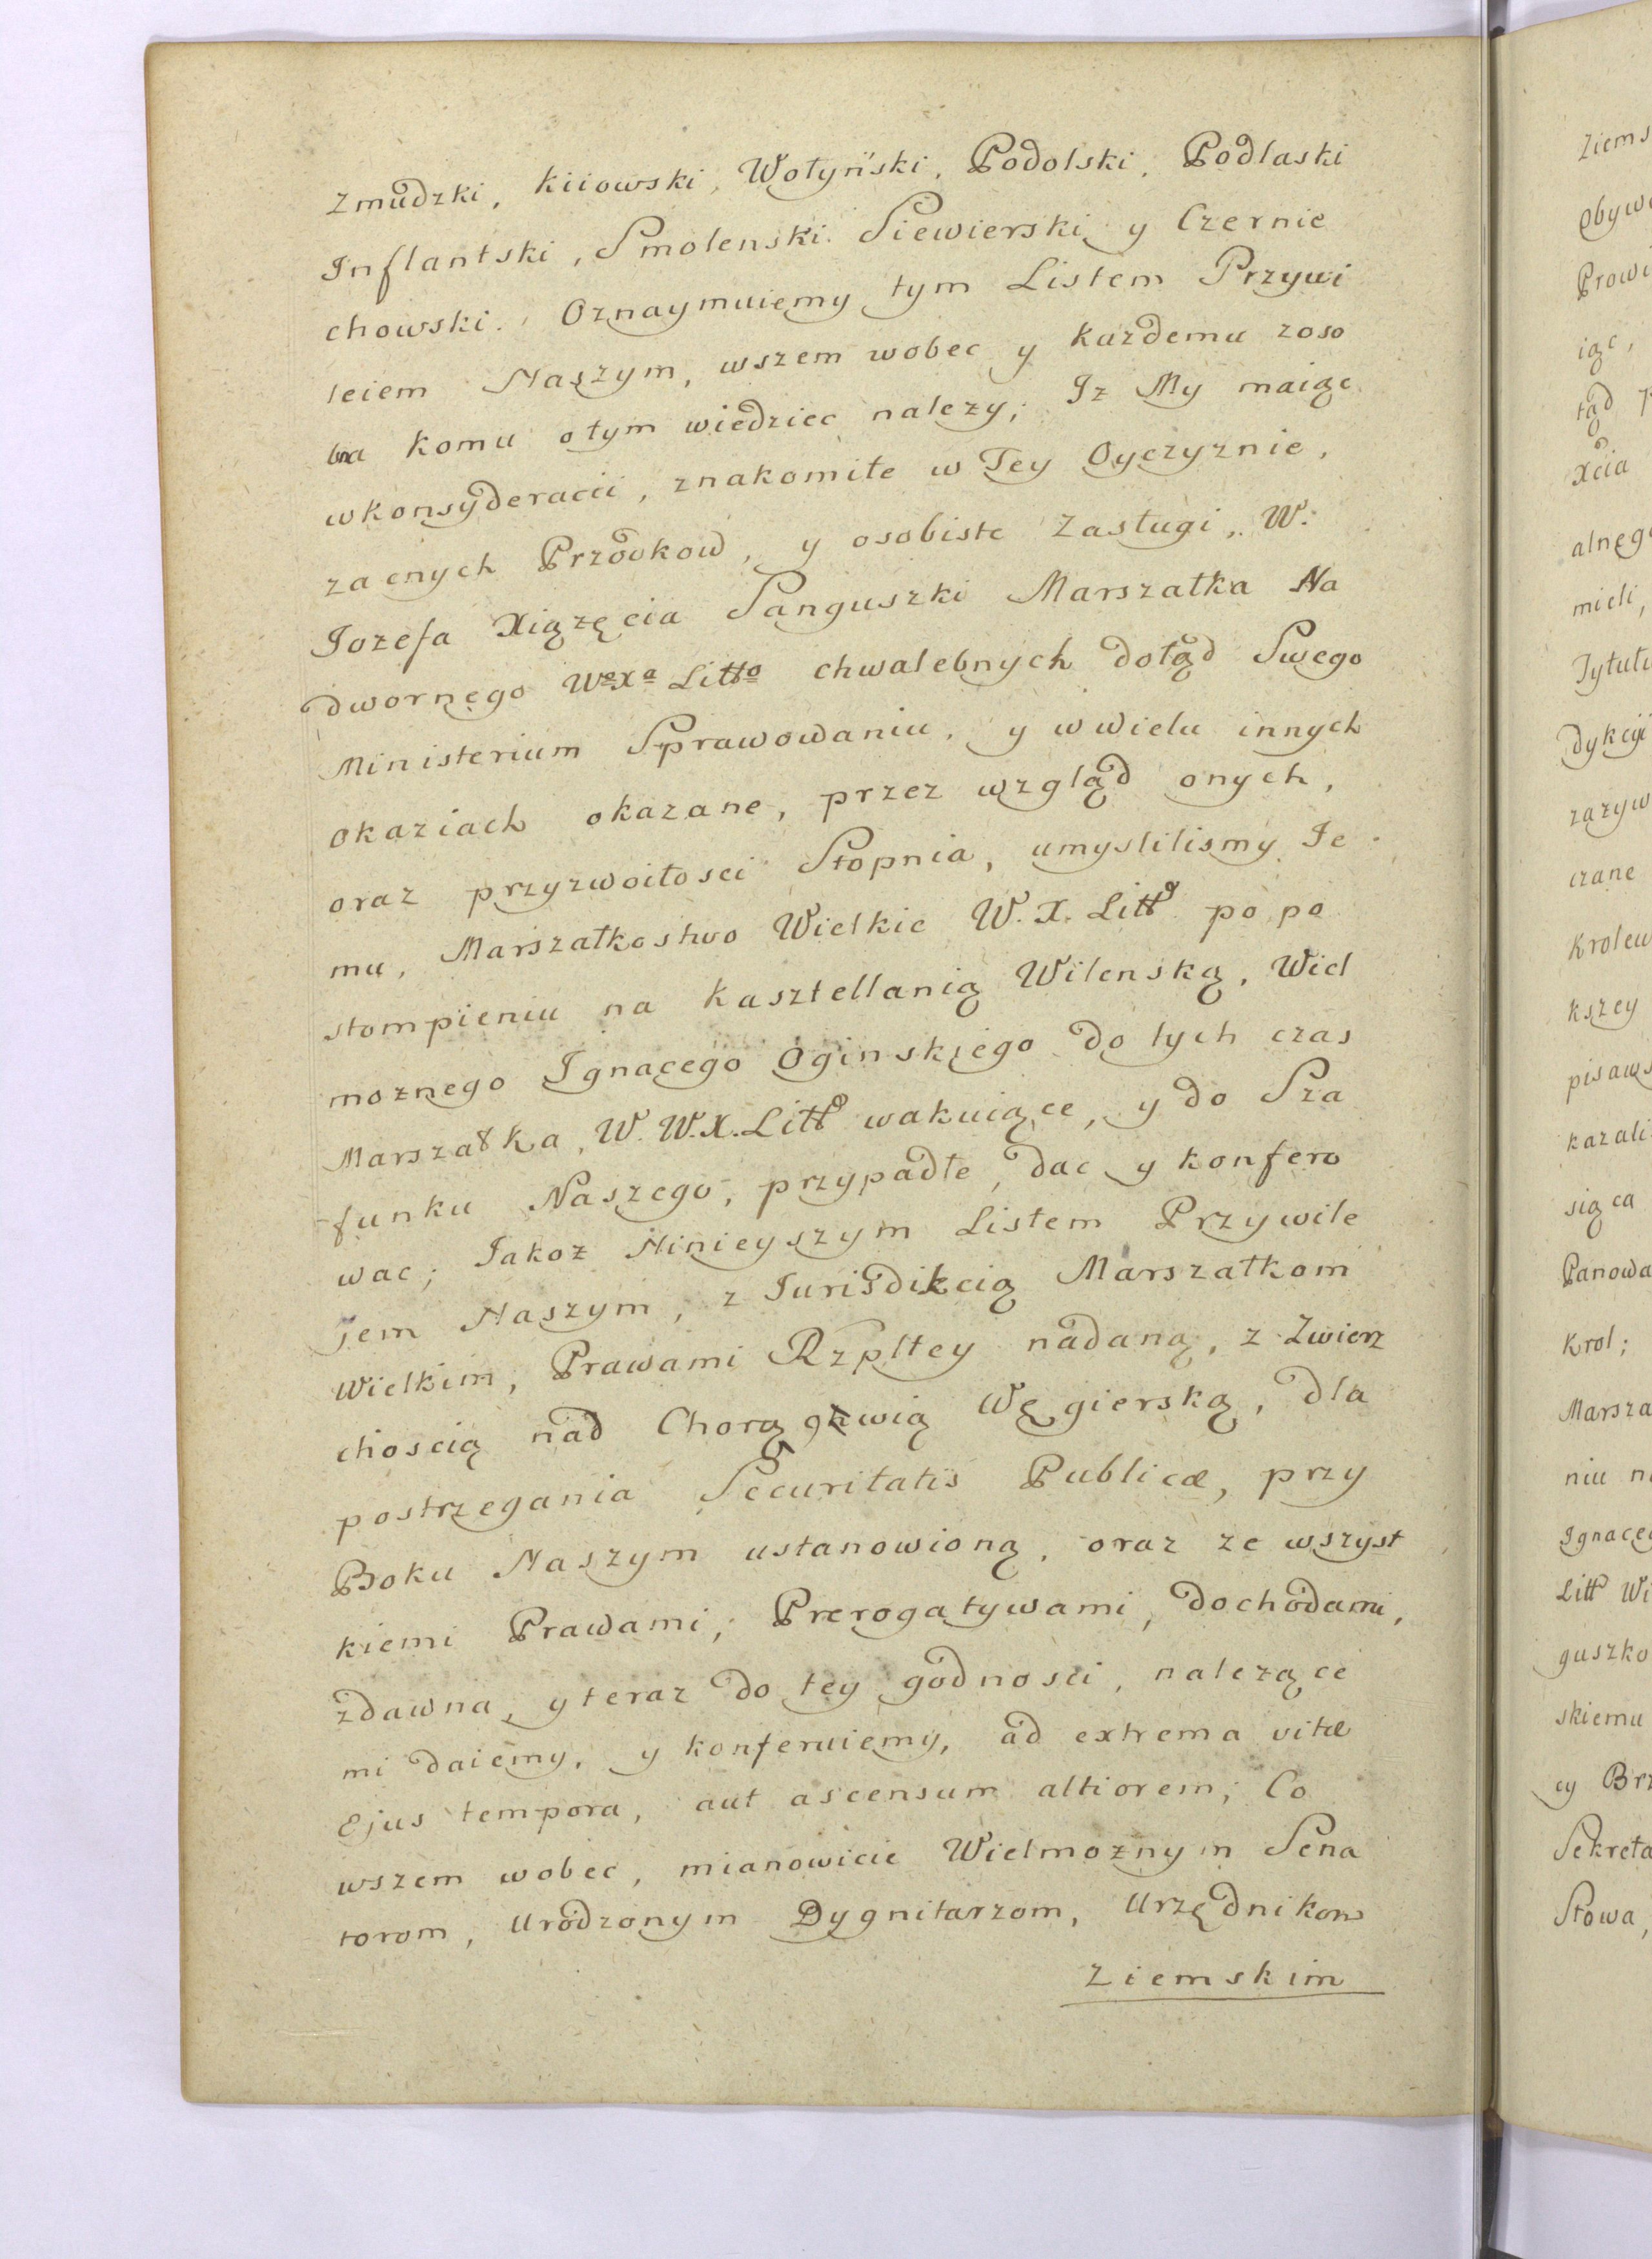 Zmudzki, Kiiowski, Wołyński, Podolski, Podlaski
Inflantski, Smolenski. Siewierski, y Czernie
chowski. Oznaymuiemy tym Listem Przywi
leiem Naszym, wszem wobec y Kazdemu zoso
bna komu otym wiedziec nalezy; Iz My maiąc
wkonsyderacii, znakomite w Tey Oyczyznie,
zacnych Przodkow, y osobiste Zasługi, W.
Iozefa Xiązęcia Sanguszki Marszałka Na
dwornego Wo Xa Litto chwalebnych dotąd Swego
Ministerium Sprawowaniu, y w wielu innych
okaziach okazane, przez wzgląd onych,
oraz przyzwoitosci Stopnia, umyslilismy Ie
mu, Marszałkostwo Wielkie W. X. Litt po po
stompieniu na Kasztellanią Wilenską, Wiel
moznego Ignacego Oginskiego do tych czas
Marszałka, W. W. X. Litt wakuiące, y do Sza
funku Naszego, przypadłe, dac y konfero
wac; Iakoz Ninieyszym Listem Przywile
jem Naszym, z Iurisdikcią Marszałkom
Wielkim, Prawami Rzpltey nadaną, z Zwierz
choscią nad Chorągwią Węgierską, dla
postrzegania Securitatis Publicæ, przy
Boku Naszym ustanowioną, oraz ze wszyst
kiemi Prawami, Prerogatywami, dochodami,
zdawna, y teraz do tey godnosci, nalezące
mi daiemy, y konferuiemy, ad extrema vitæ
Ejus tempora, aut ascensum altiorem; Co
wszem wobec, mianowicie Wielmoznym Sena
torom, Urodzonym Dygnitarzom, Urzędnikom
Ziemskim
Ziems
Obywa
Prowi
iąc,
tąd
Xcia
alneg
mieli,
Tytuł
dykcyi
zazyw
czane
Krolew
kszey
pisaws
kazali
siąca
Panowa
Krol;
Marsza
niu n
Ignaceg
Litt Wi
guszko
skiemu
cy Brz
Sekreta
Słowa,